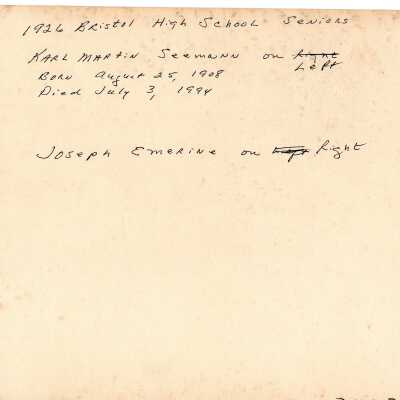 1926 Bristol High School Seniors
Karl Martin Seemann on Right
Left
Born August 25, 1908
Died July 3, 1994
Joseph Emerine on Left Right